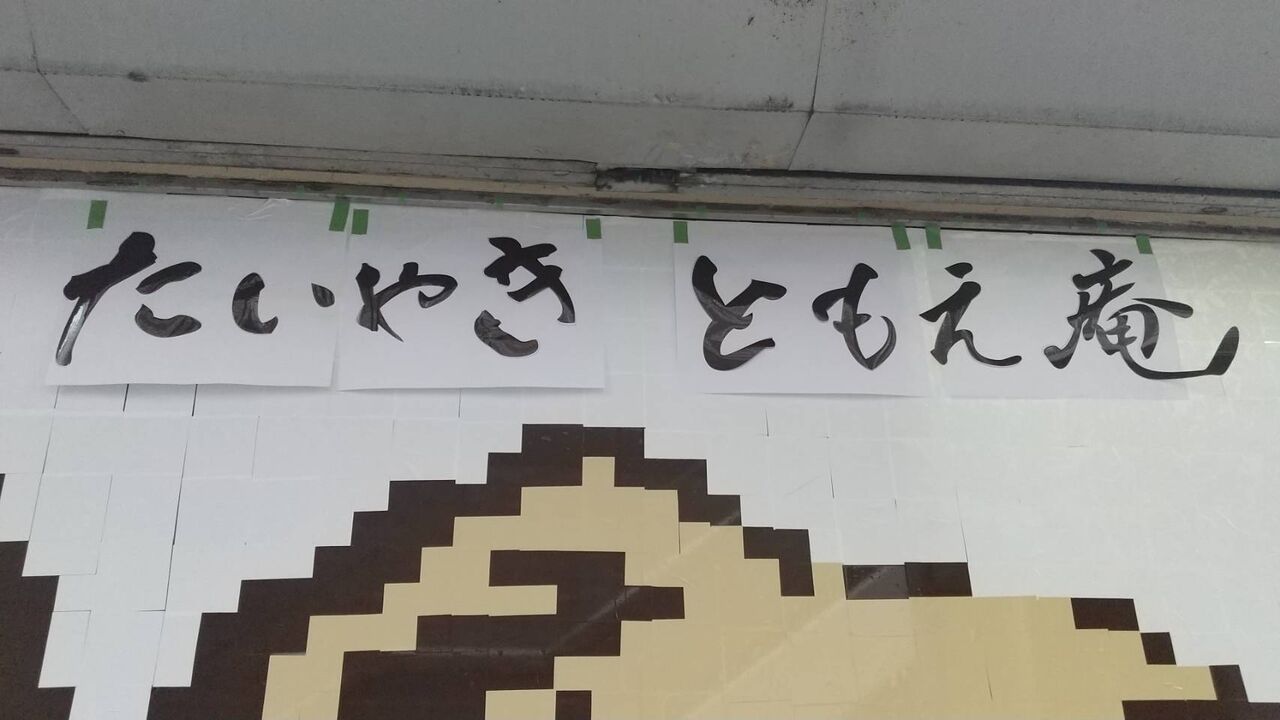 たいやき ともえ庵